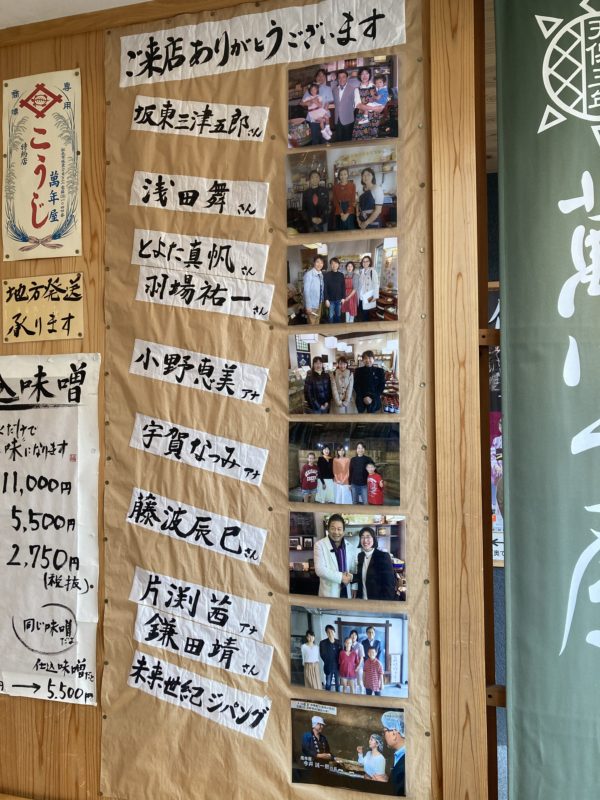 ご来店ありがとうございます
坂東三津五郎さん
浅田舞さん
とよた真帆さん
羽場祐一さん
小野恵美アナ
宇賀なつみアナ
藤波辰巳さん
片渕茜アナ
鎌田靖さん
未来世紀ジパング
専用
こうじ
特約店
萬年屋
地方発送
承ります
味噌
くだけで
味になります
11,000円
5,500円
2,750円
(税抜)
同じ味噌
だよ
仕込味噌だと
円→5,500円
天保三年